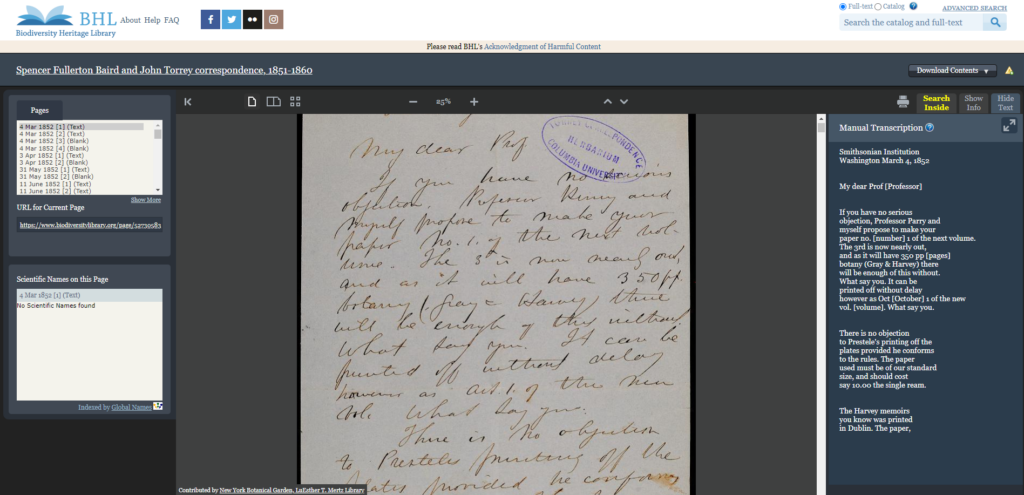 BHL
Biodiversity Heritage Library
About Help FAQ
Full-text Catalog
ADVANCED SEARCH
Search the catalog and full-text
Please read BHL's Acknowledgment of Harmful Content
Spencer Fullerton Baird and John Torrey correspondence, 1851-1860
Download Contents
Pages
4 Mar 1852 [1] (Text)
4 Mar 1852 [2] (Text)
4 Mar 1852 [3] (Blank)
4 Mar 1852 [4] (Blank)
3 Apr 1852 [1] (Text)
3 Apr 1852 [2] (Blank)
31 May 1852 [1] (Text)
31 May 1852 [2] (Blank)
11 June 1852 [1] (Text)
11 June 1852 [2] (Text)
Show More
URL for Current Page
https://www.biodiversitylibrary.org/page/52750583
Scientific Names on this Page
4 Mar 1852 [1] (Text)
No Scientific Names found
Indexed by Global Names
25%
TORREY CORRESPONDENCE
HERBARIUM
COLUMBIA UNIVERSITY
My dear Prof
If you have no serious
objection. Professor Henry and
myself propose to make your
paper No. 1. of the next vol-
ume. The 3d is now nearly out,
and as it will have 350 pp
botany (Gray & Harvey) there
will be enough of this without.
What say you. It can be
printed off without delay
however as art. 1. of the new
vol. What say you.
There is no objection
to Prestele's printing off the
plates provided he conforms
Contributed by New York Botanical Garden, LuEsther T. Mertz Library
Search Inside
Show Info
Hide Text
Manual Transcription
Smithsonian Institution
Washington March 4, 1852
My dear Prof [Professor]
If you have no serious
objection, Professor Parry and
myself propose to make your
paper no. [number] 1 of the next volume.
The 3rd is now nearly out,
and as it will have 350 pp [pages]
botany (Gray & Harvey) there
will be enough of this without.
What say you. It can be
printed off without delay
however as Oct [October] 1 of the new
vol. [volume]. What say you.
There is no objection
to Prestele's printing off the
plates provided he conforms
to the rules. The paper
used must be of our standard
size, and should cost
say 10.00 the single ream.
The Harvey memoirs
you know was printed
in Dublin. The paper,